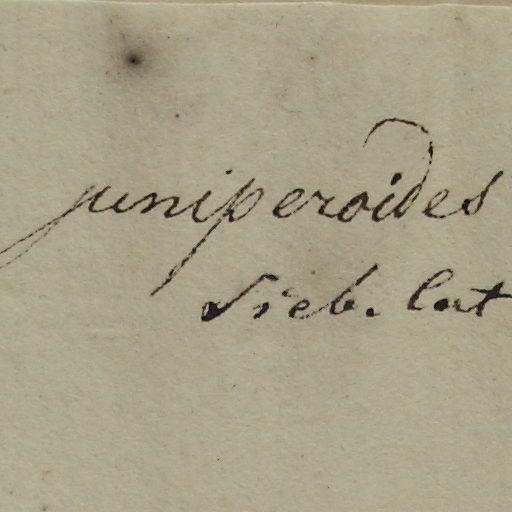 juniperoides
Sieb. Cat